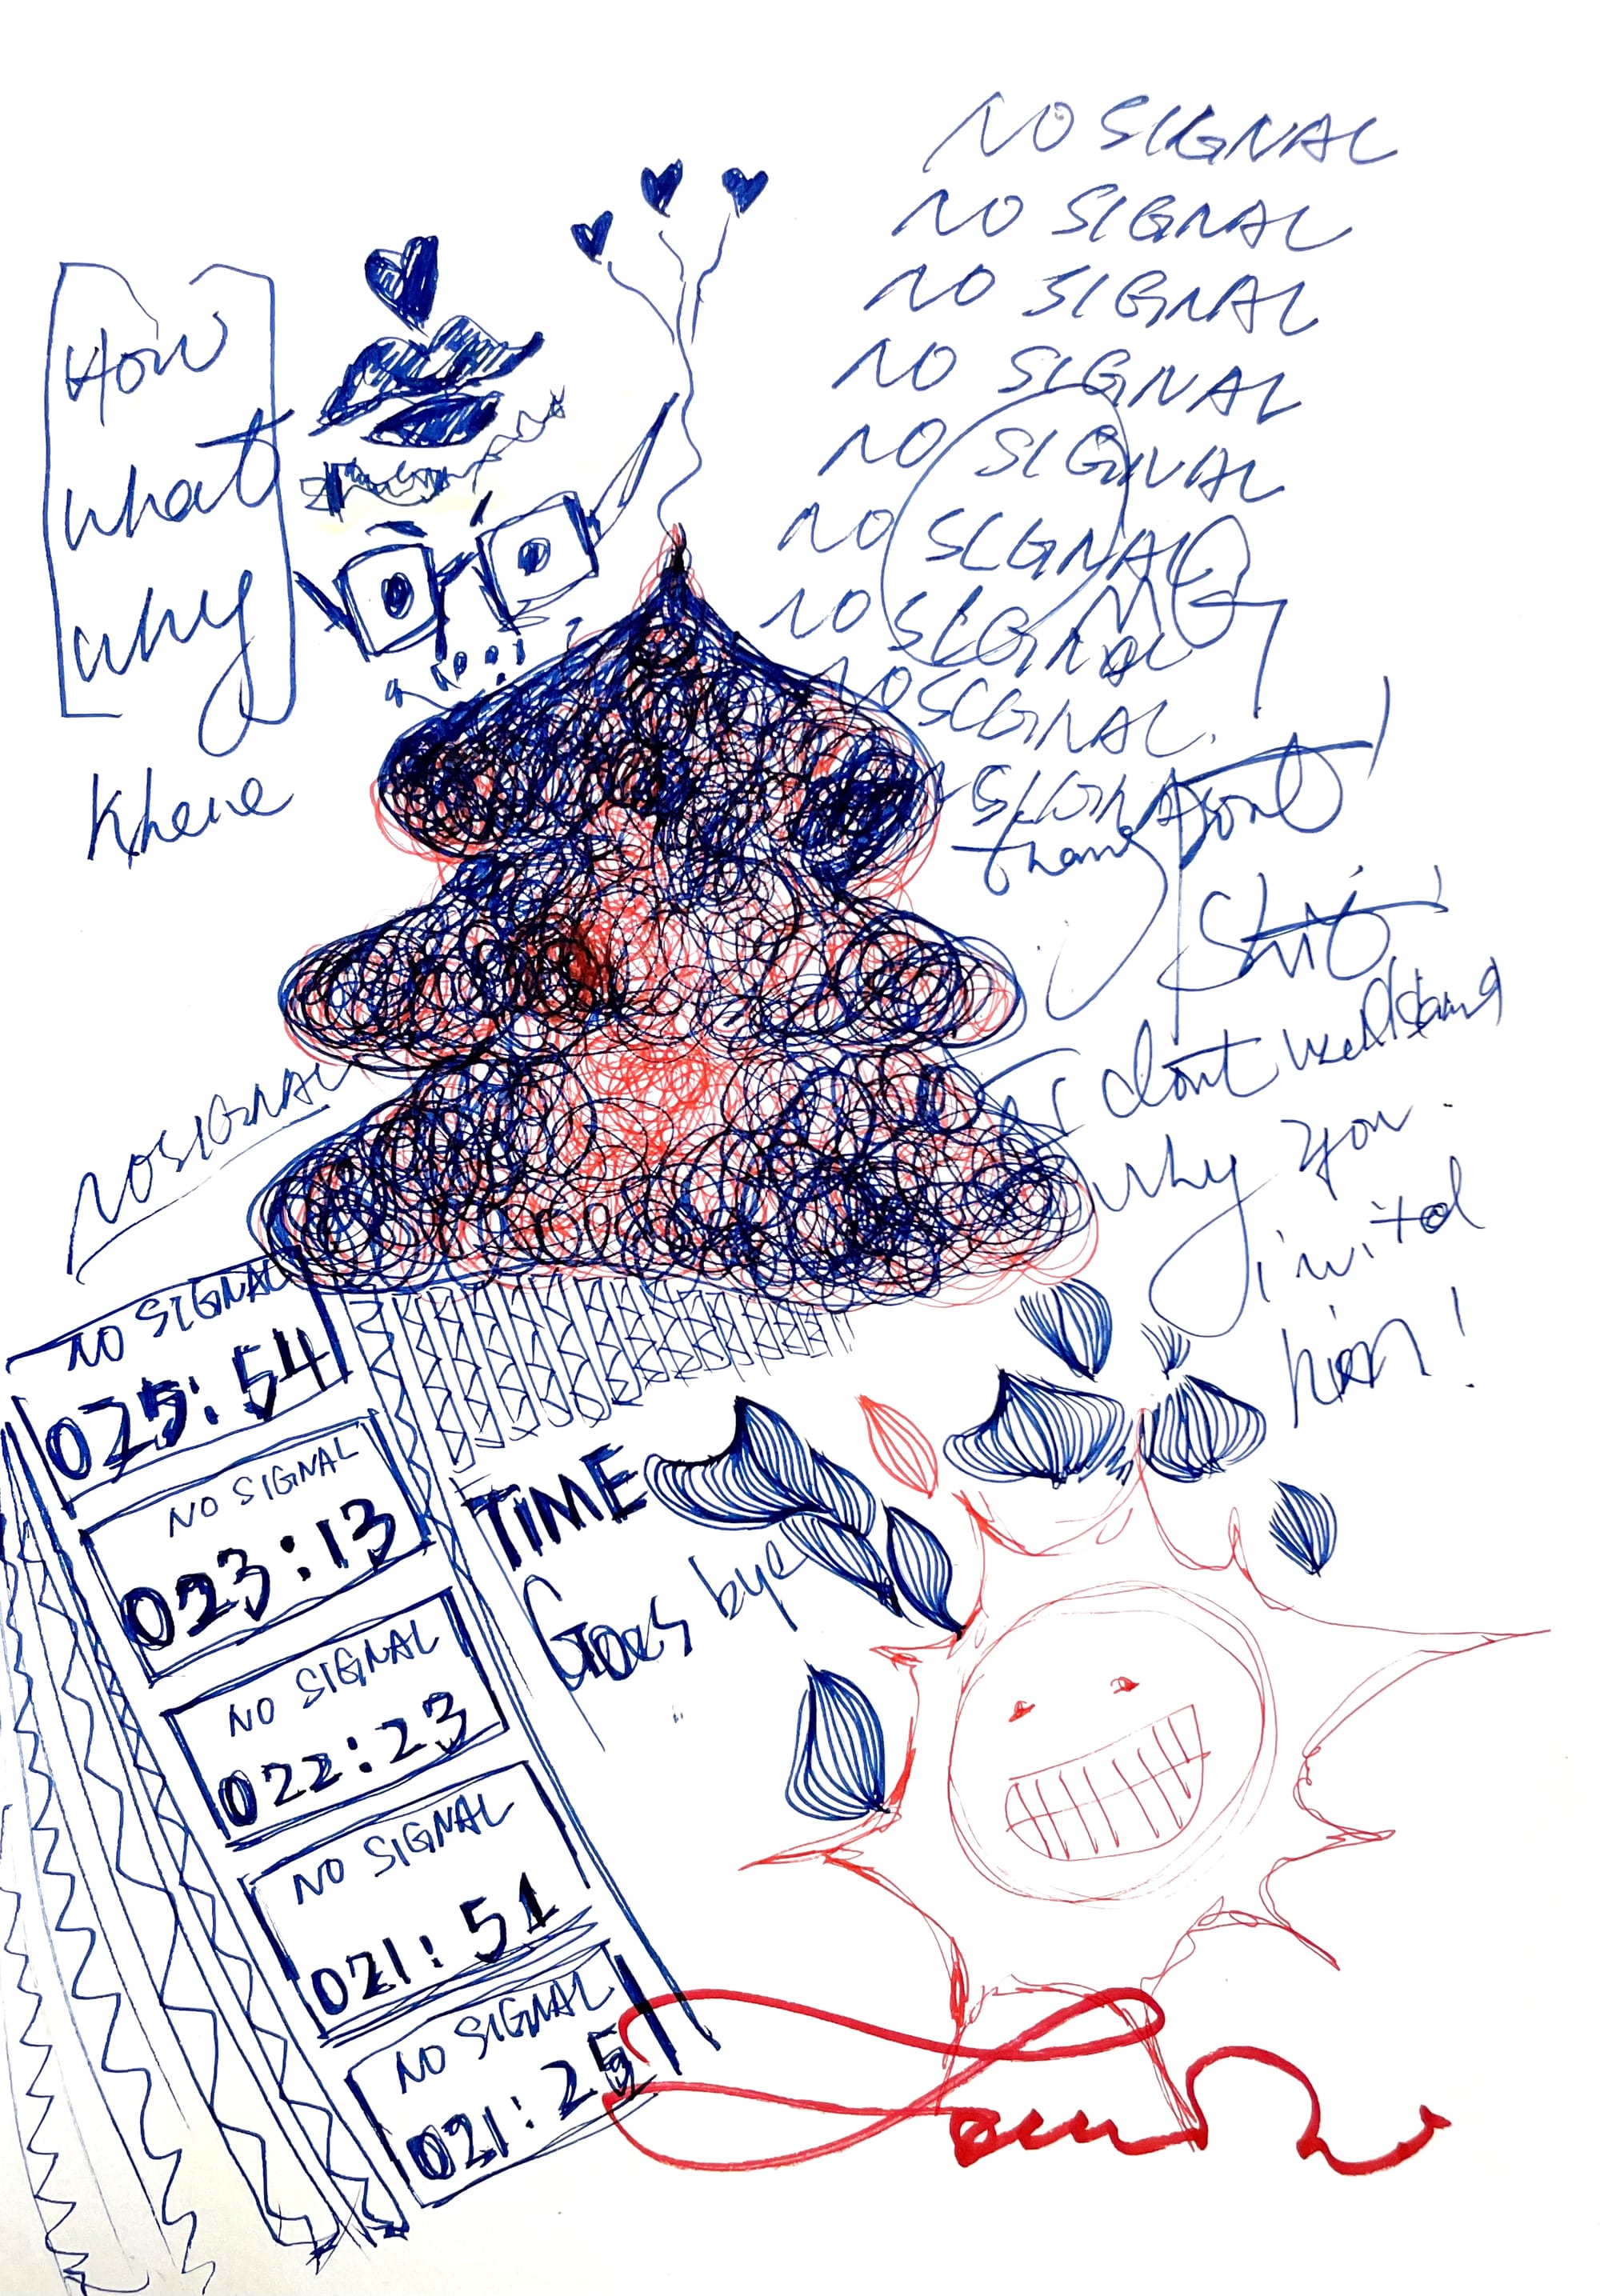 NO SIGNAL
NO SIGNAL
NO SIGNAL
NO SIGNAL
NO SIGNAL
NO SIGNAL
NO SIGNAL
NO SIGNAL.
SIGNAL
How
what
why
I dont
why you
invited
him!
NO SIGNAL
NO SIGNAL
025:54
NO SIGNAL
023:13
NO SIGNAL
022:23
NO SIGNAL
021:51
NO SIGNAL
021:25
TIME
Goes bye